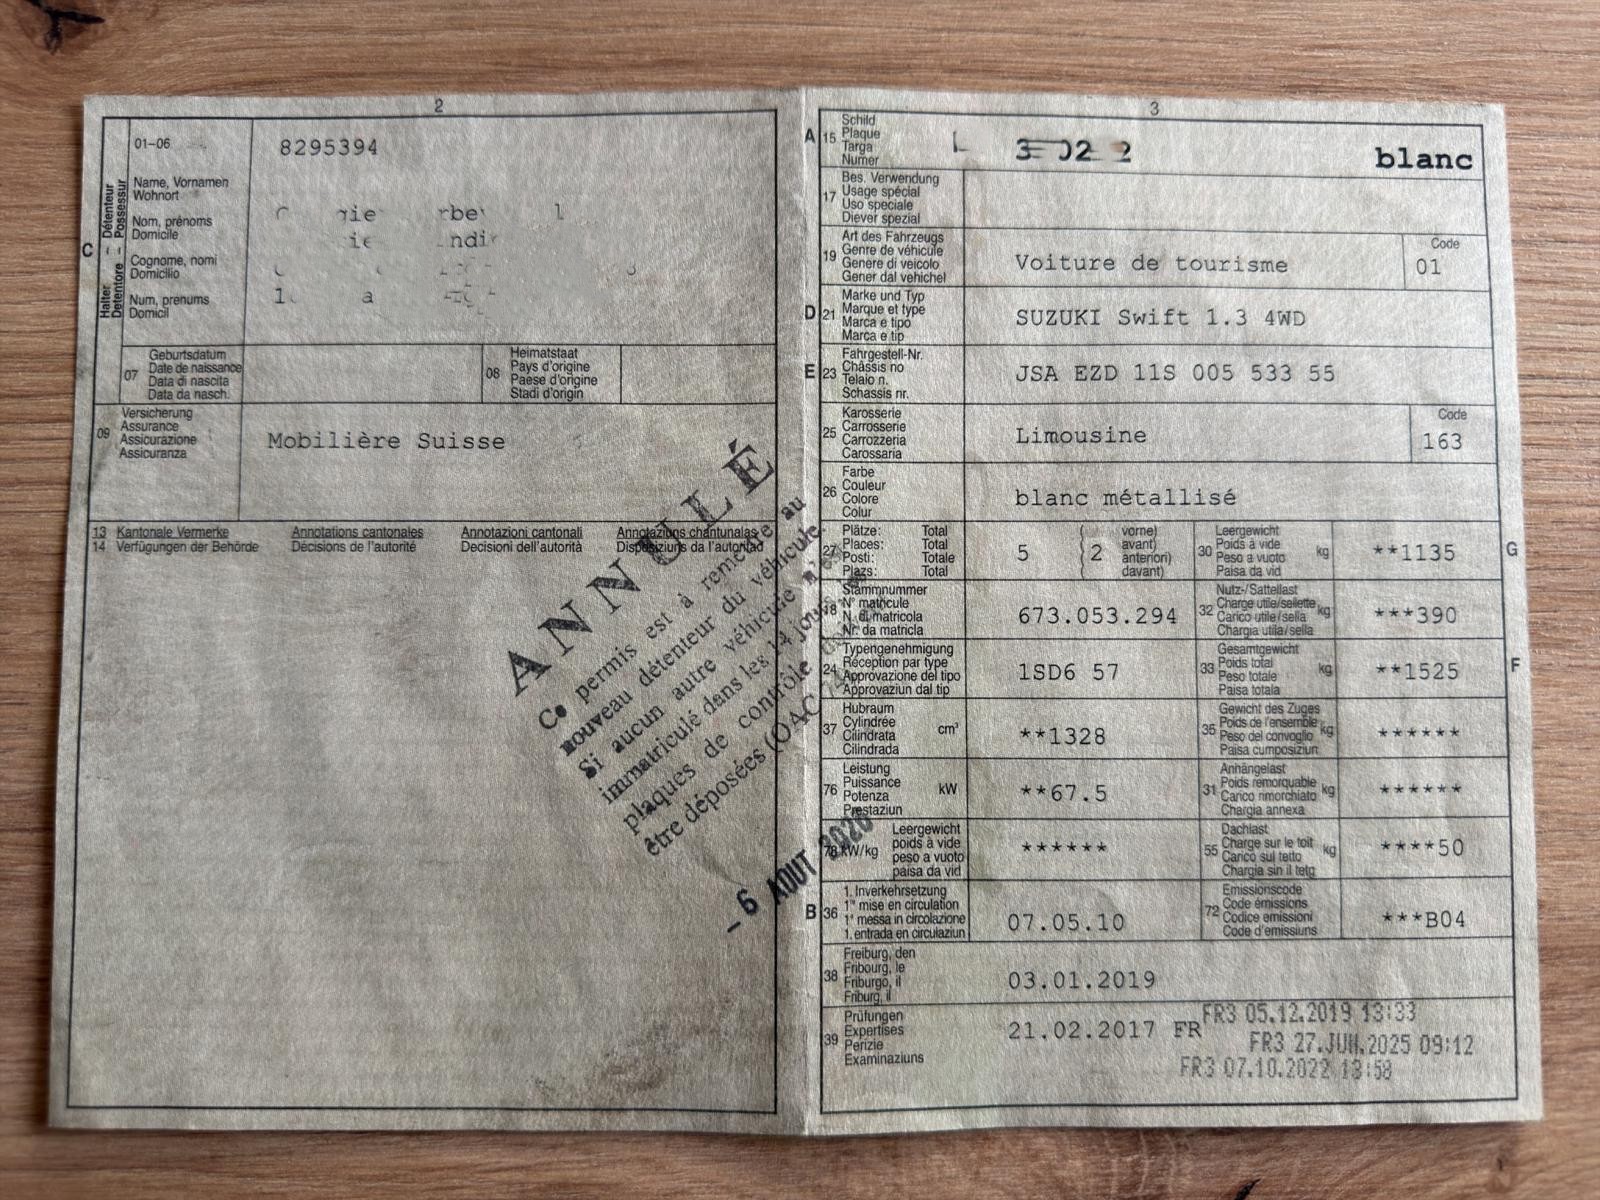 2
01-06
8295394
Name, Vornamen
Wohnort
Nom, prénoms
Domicile
Cognome, nomi
Domicilio
Num, prenums
Domicil
C
Halter – Détenteur
Detentore – Possessur
07
Geburtsdatum
Date de naissance
Data di nascita
Data da nasch.
08
Heimatstaat
Pays d'origine
Paese d'origine
Stadi d'origin
09
Versicherung
Assurance
Assicurazione
Assicuranza
Mobilière Suisse
13 Kantonale Vermerke Annotations cantonales Annotazioni cantonali Annotaziuns chantunalas
14 Verfügungen der Behörde Décisions de l'autorité Decisioni dell'autorità Dispositiuns da l'autoritad
ANNULÉ
Ce permis est à remettre au
nouveau détenteur du véhicule.
Si aucun autre véhicule n'est
immatriculé dans les 14 jours
plaques de contrôle
être déposées (OAC
- 6 AOUT 2026
3
A 15
Schild
Plaque
Targa
Numer
blanc
17
Bes. Verwendung
Usage spécial
Uso speciale
Diever spezial
19
Art des Fahrzeugs
Genre de véhicule
Genere di veicolo
Gener dal vehichel
Voiture de tourisme
Code
01
D 21
Marke und Typ
Marque et type
Marca e tipo
Marca e tip
SUZUKI Swift 1.3 4WD
E 23
Fahrgestell-Nr.
Châssis no
Telaio n.
Schassis nr.
JSA EZD 11S 005 533 55
25
Karosserie
Carrosserie
Carrozzeria
Carossaria
Limousine
Code
163
26
Farbe
Couleur
Colore
Colur
blanc métallisé
27
Plätze: Total
Places: Total
Posti: Totale
Plazs: Total
5
2
vorne)
avant)
anteriori)
davant)
30
Leergewicht
Poids à vide
Peso a vuoto
Paisa da vid
kg
**1135
G
18
Stammnummer
N° matricule
N. di matricola
Nr. da matricla
673.053.294
32
Nutz-/Sattellast
Charge utile/sellette
Carico utile/sella
Chargia utila/sella
kg
***390
24
Typengenehmigung
Réception par type
Approvazione del tipo
Approvaziun dal tip
1SD6 57
33
Gesamtgewicht
Poids total
Peso totale
Paisa totala
kg
**1525
F
37
Hubraum
Cylindrée
Cilindrata
Cilindrada
cm³
**1328
35
Gewicht des Zuges
Poids de l'ensemble
Peso del convoglio
Paisa cumposiziun
kg
******
76
Leistung
Puissance
Potenza
Prestaziun
kW
**67.5
31
Anhängelast
Poids remorquable
Carico rimorchiato
Chargia annexa
kg
******
78 kW/kg
Leergewicht
poids à vide
peso a vuoto
paisa da vid
******
55
Dachlast
Charge sur le toit
Carico sul tetto
Chargia sin il tetg
kg
****50
B 36
1. Inverkehrsetzung
1re mise en circulation
1a messa in circolazione
1. entrada en circulaziun
07.05.10
72
Emissionscode
Code émissions
Codice emissioni
Code d'emissiuns
***B04
38
Freiburg, den
Fribourg, le
Friburgo, il
Friburg, il
03.01.2019
39
Prüfungen
Expertises
Perizie
Examinaziuns
21.02.2017 FR
FR3 05.12.2019 13:33
FR3 27.JUN.2025 09:12
FR3 07.10.2022 13:58